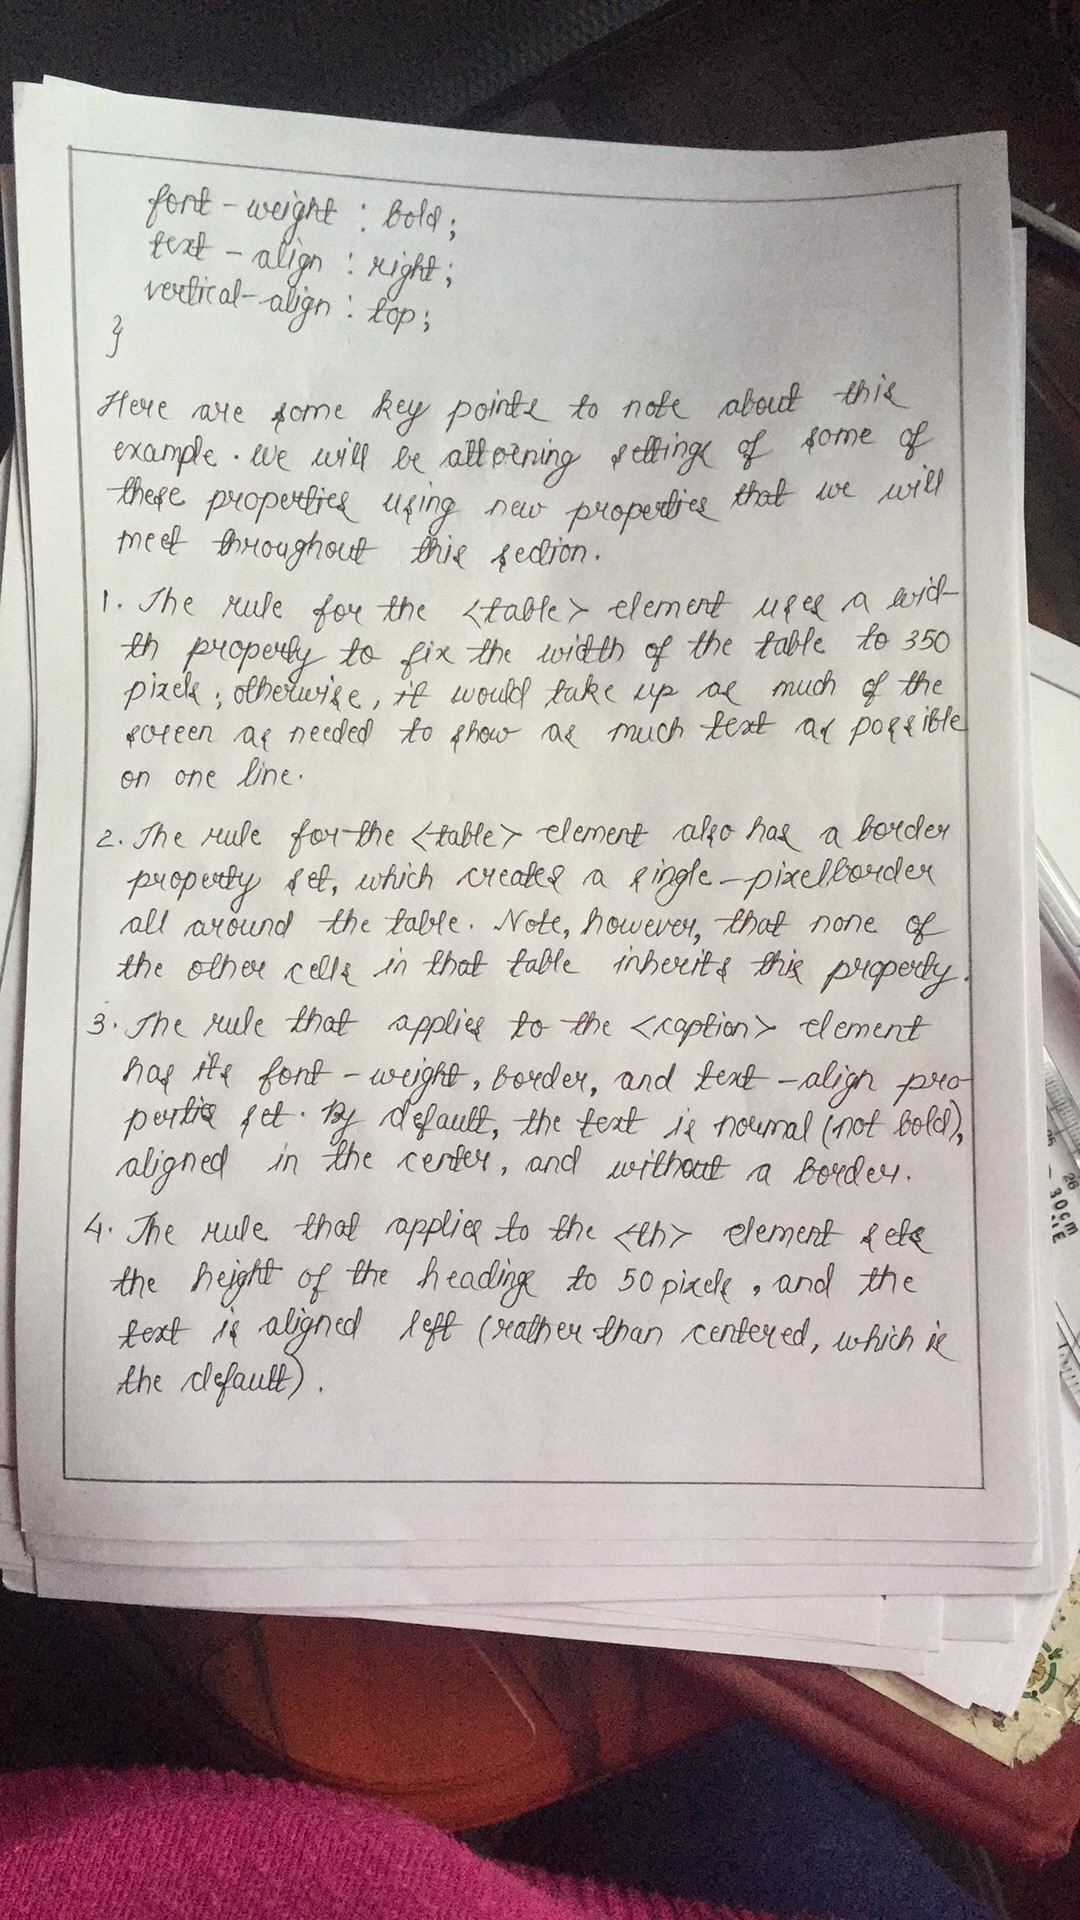 font-weight : bold;
text-align : right;
vertical-align : top;
}
Here are some key points to note about this
example. we will be altering settings of some of
these properties using new properties that we will
meet throughout this section.
1. The rule for the <table> element uses a wid-
th property to fix the width of the table to 350
pixels; otherwise, it would take up as much of the
screen as needed to show as much text as possible
on one line.
2. The rule for the <table> element also has a border
property set, which creates a single-pixel border
all around the table. Note, however, that none of
the other cells in that table inherits this property.
3. The rule that applies to the <caption> element
has its font-weight, border, and text-align pro-
perties set. By default, the text is normal (not bold),
aligned in the center, and without a border.
4. The rule that applies to the <th> element sets
the height of the headings to 50 pixels, and the
text is aligned left (rather than centered, which is
the default).
26
30cm